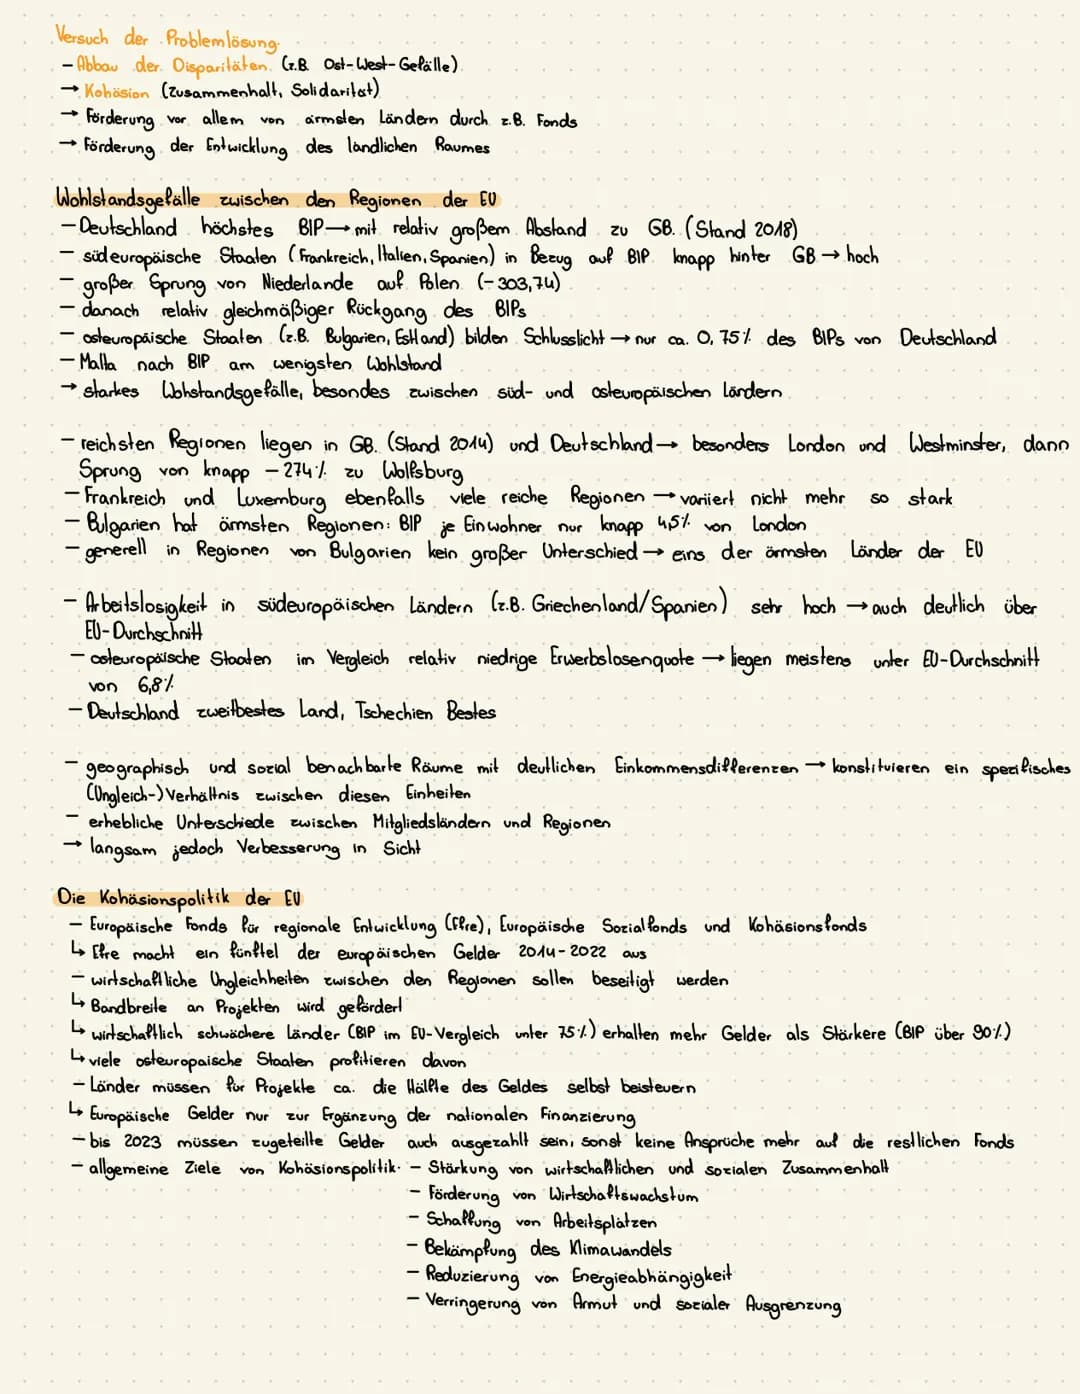 Versuch der Problemlösung
- Abbau der Disparitäten (z.B. Ost-West-Gefälle)
→ Kohäsion (Zusammenhalt, Solidarität)
→ Förderung vor allem von ärmsten Ländern durch z.B. Fonds
→ Förderung der Entwicklung des ländlichen Raumes
Wohlstandsgefälle zwischen den Regionen der EU
- Deutschland höchstes BIP → mit relativ großem Abstand zu GB. (Stand 2018)
- südeuropäische Staaten (Frankreich, Italien, Spanien) in Bezug auf BIP knapp hinter GB → hoch
- großer Sprung von Niederlande auf Polen (-303,74)
- danach relativ gleichmäßiger Rückgang des BIPs
- osteuropäische Staaten (z.B. Bulgarien, Estland) bilden Schlusslicht → nur ca. 0,75% des BIPs von Deutschland
- Malta nach BIP am wenigsten Wohlstand
→ starkes Wohstandsgefälle, besondes zwischen süd- und osteuropäischen Ländern
- reichsten Regionen liegen in GB. (Stand 2014) und Deutschland → besonders London und Westminster, dann
Sprung von knapp -274% zu Wolfsburg
- Frankreich und Luxemburg ebenfalls viele reiche Regionen → variiert nicht mehr so stark
- Bulgarien hat ärmsten Regionen: BIP je Einwohner nur knapp 4,5% von London
- generell in Regionen von Bulgarien kein großer Unterschied → eins der ärmsten Länder der EU
- Arbeitslosigkeit in südeuropäischen Ländern (z.B. Griechenland/Spanien) sehr hoch → auch deutlich über
EU-Durchschnitt
- osteuropäische Staaten im Vergleich relativ niedrige Erwerbslosenquote → liegen meistens unter EU-Durchschnitt
von 6,8%
- Deutschland zweitbestes Land, Tschechien Bestes
- geographisch und sozial benachbarte Räume mit deutlichen Einkommensdifferenzen → konstituieren ein spezifisches
(Ungleich-)Verhältnis zwischen diesen Einheiten
- erhebliche Unterschiede zwischen Mitgliedsländern und Regionen
→ langsam jedoch Verbesserung in Sicht
Die Kohäsionspolitik der EU
- Europäische Fonds für regionale Entwicklung (Efre), Europäische Sozialfonds und Kohäsionsfonds
↳ Efre macht ein fünftel der europäischen Gelder 2014-2022 aus
- wirtschaftliche Ungleichheiten zwischen den Regionen sollen beseitigt werden
↳ Bandbreite an Projekten wird gefördert
↳ wirtschaftlich schwächere Länder (BIP im EU-Vergleich unter 75%) erhalten mehr Gelder als Stärkere (BIP über 90%)
↳ viele osteuropaische Staaten profitieren davon
- Länder müssen für Projekte ca. die Hälfte des Geldes selbst beisteuern
↳ Europäische Gelder nur zur Ergänzung der nationalen Finanzierung
- bis 2023 müssen zugeteilte Gelder auch ausgezahlt sein, sonst keine Ansprüche mehr auf die restlichen Fonds
- allgemeine Ziele von Kohäsionspolitik: - Stärkung von wirtschaftlichen und sozialen Zusammenhalt
- Förderung von Wirtschaftswachstum
- Schaffung von Arbeitsplätzen
- Bekämpfung des Klimawandels
- Reduzierung von Energieabhängigkeit
- Verringerung von Armut und sozialer Ausgrenzung